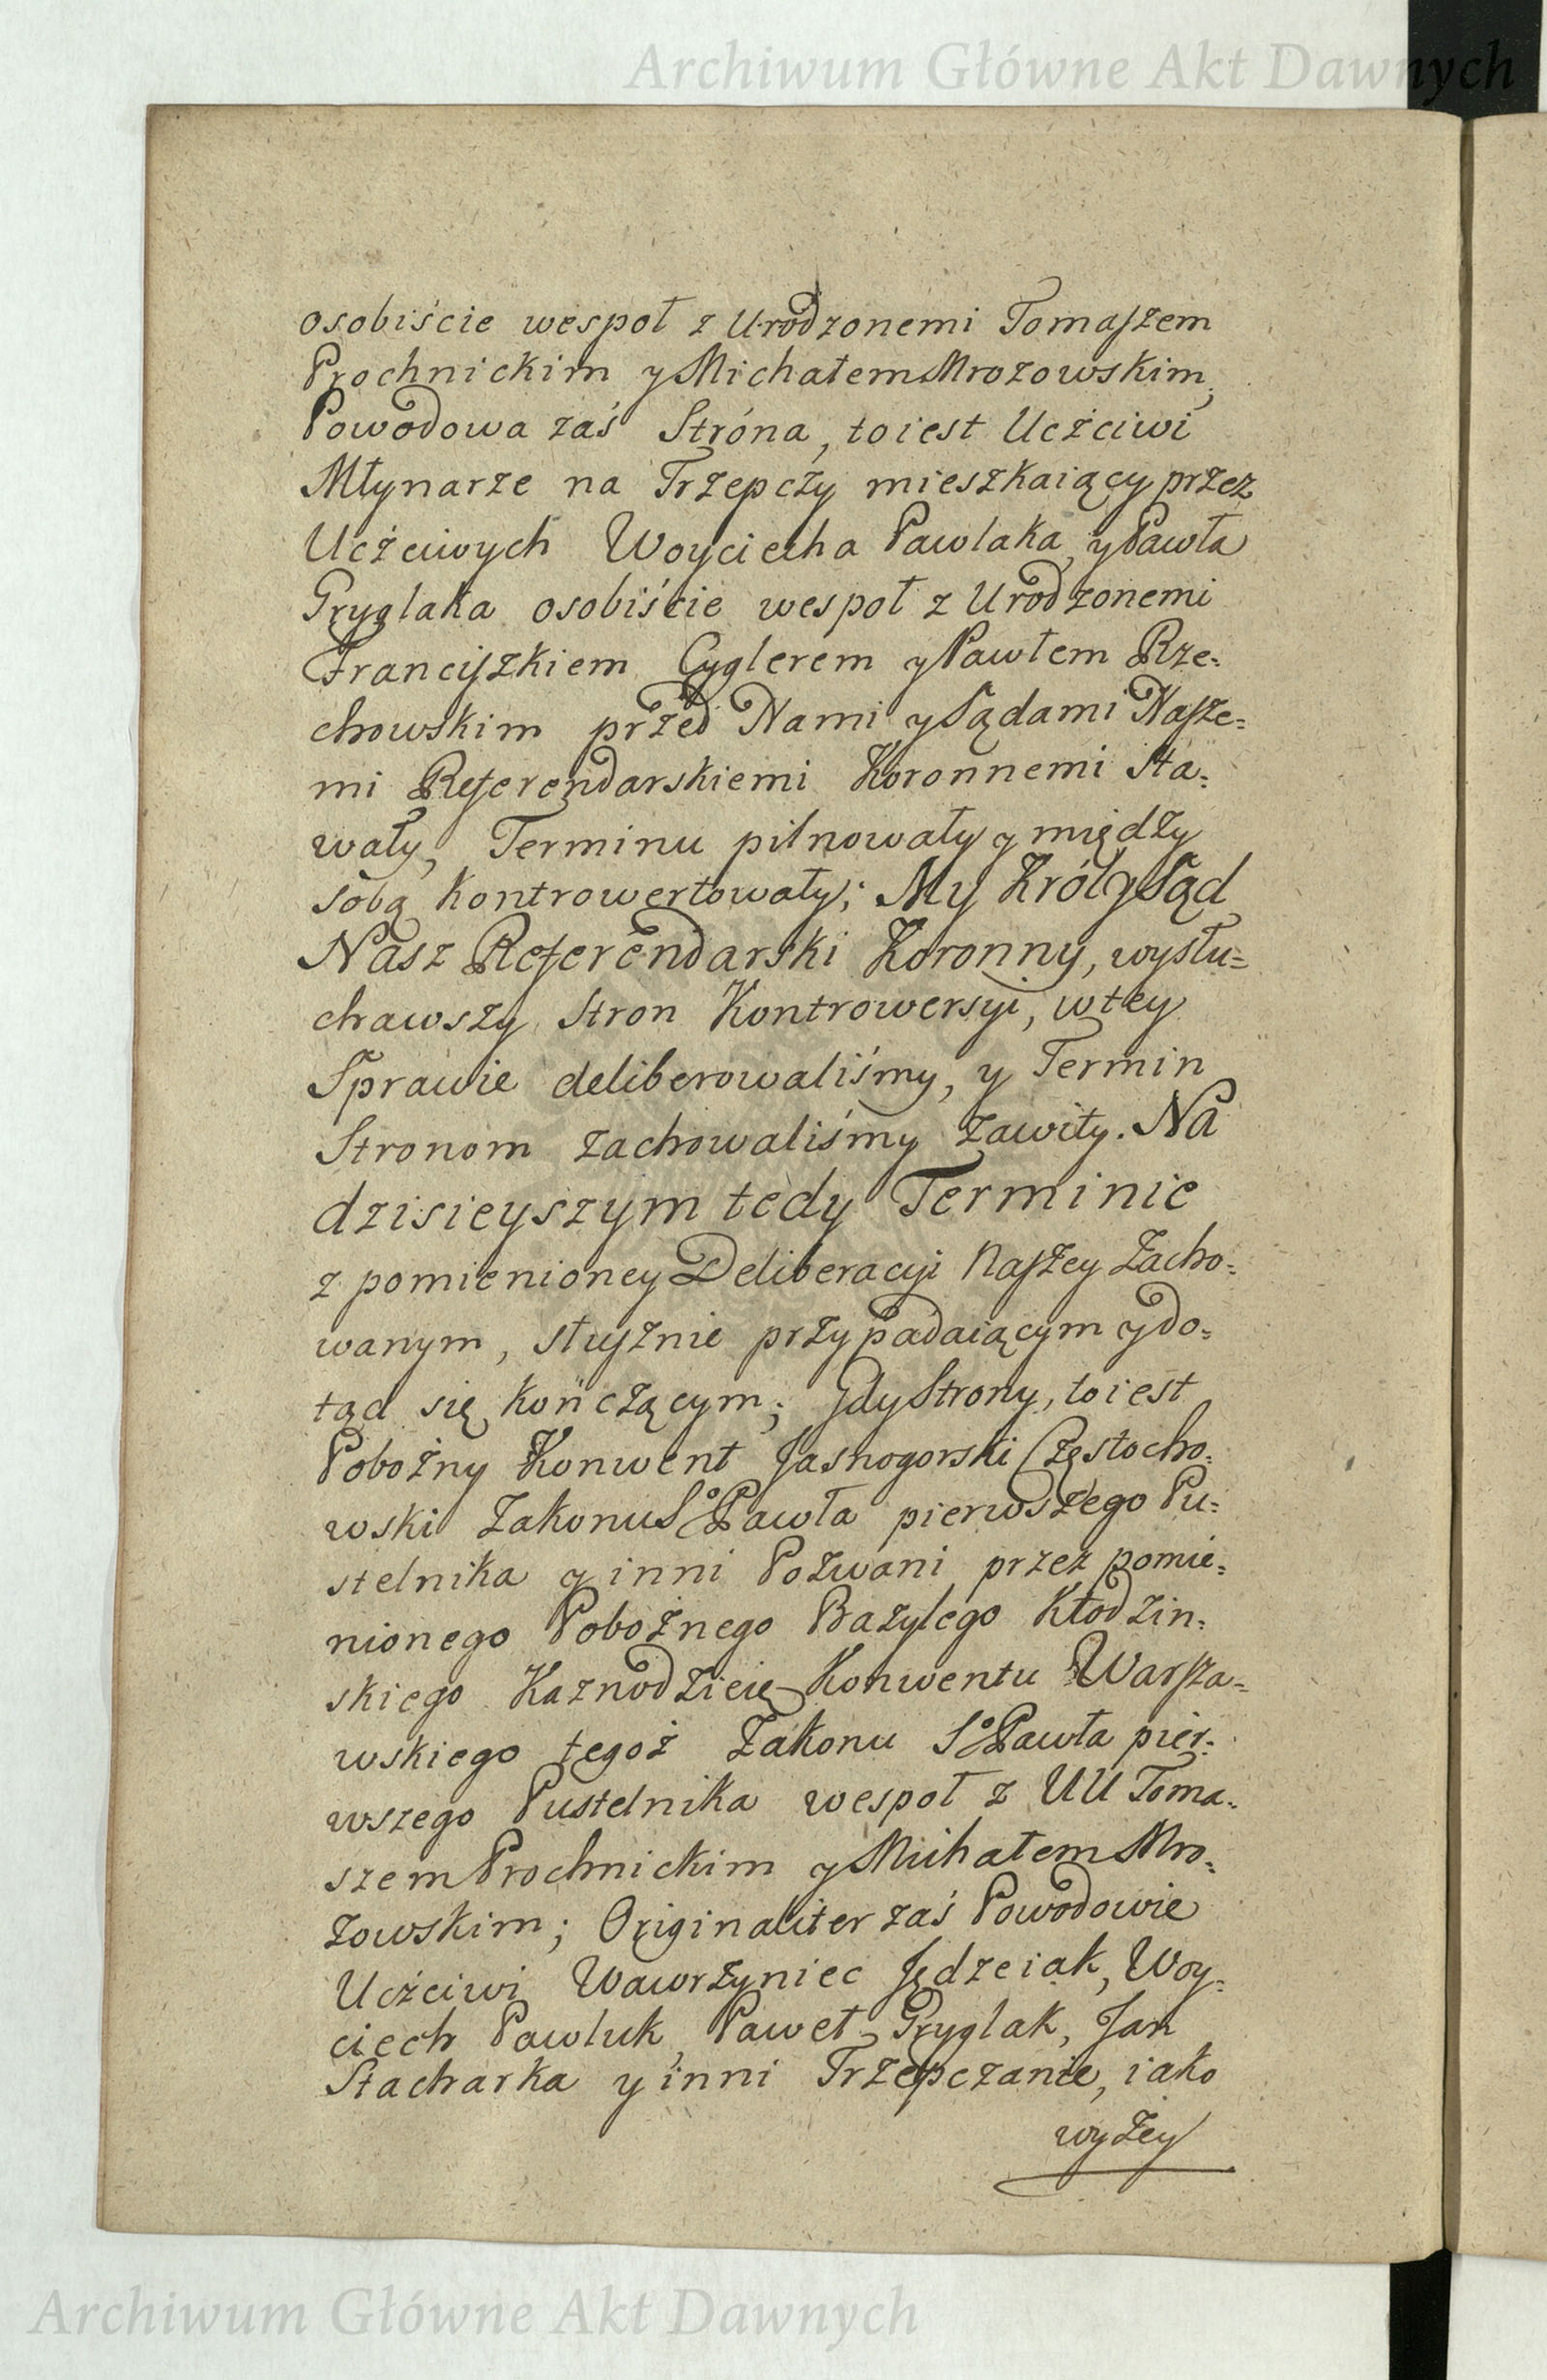 Archiwum Główne Akt Dawnych
osobiście wespoł z Urodzonemi Tomaszem
Prochnickim y Michałem Mrozowskim,
Powodowa zaś Stróna, to iest Uczciwi
Młynarze na Trzepczy mieszkaiący przez
Uczciwych Woyciecha Pawlaka, y Pawła
Gryglaka osobiście wespoł z Urodzonemi
Franciszkiem Cyglerem y Pawłem Rze=
chowskim przed Nami y Sądami Nasze=
mi Referendarskiemi Koronnemi Sta=
wały, Terminu pilnowały y między
sobą kontrowertowały; My Król y Sąd
Nasz Referendarski Koronny, wysłu=
chawszy Stron Kontrowersyi, w tey
Sprawie deliberowaliśmy, y Termin
Stronom zachowaliśmy zawity. Na
dzisieyszym tedy Terminie
z pomienioney Deliberacyi Naszey Zacho=
wanym, słusznie przypadaiącym y do=
tąd się kończącym; gdy Strony, to iest
Pobożny Konwent Jasnogorski Częstocho=
wski Zakonu So Pawła pierwszego Pu=
stelnika y inni Pozwani przez pomie=
nionego Pobożnego Bazylego Kłodzin=
skiego Kaznodzieię Konwentu Warsza=
wskiego tegoż Zakonu So Pawła pier=
wszego Pustelnika wespoł z UU Toma=
szem Prochnickim y Michałem Mro=
zowskim; Originaliter zaś Powodowie
Uczciwi Wawrzyniec Jędzeiak, Woy=
ciech Pawluk, Paweł Gryglak, Jan
Stacharka y inni Trzepczanie, iako
wyżey
Archiwum Główne Akt Dawnych